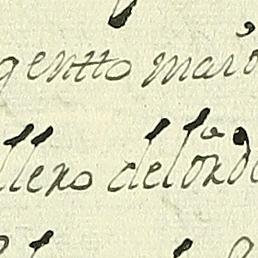 gentto maio
llero del orde